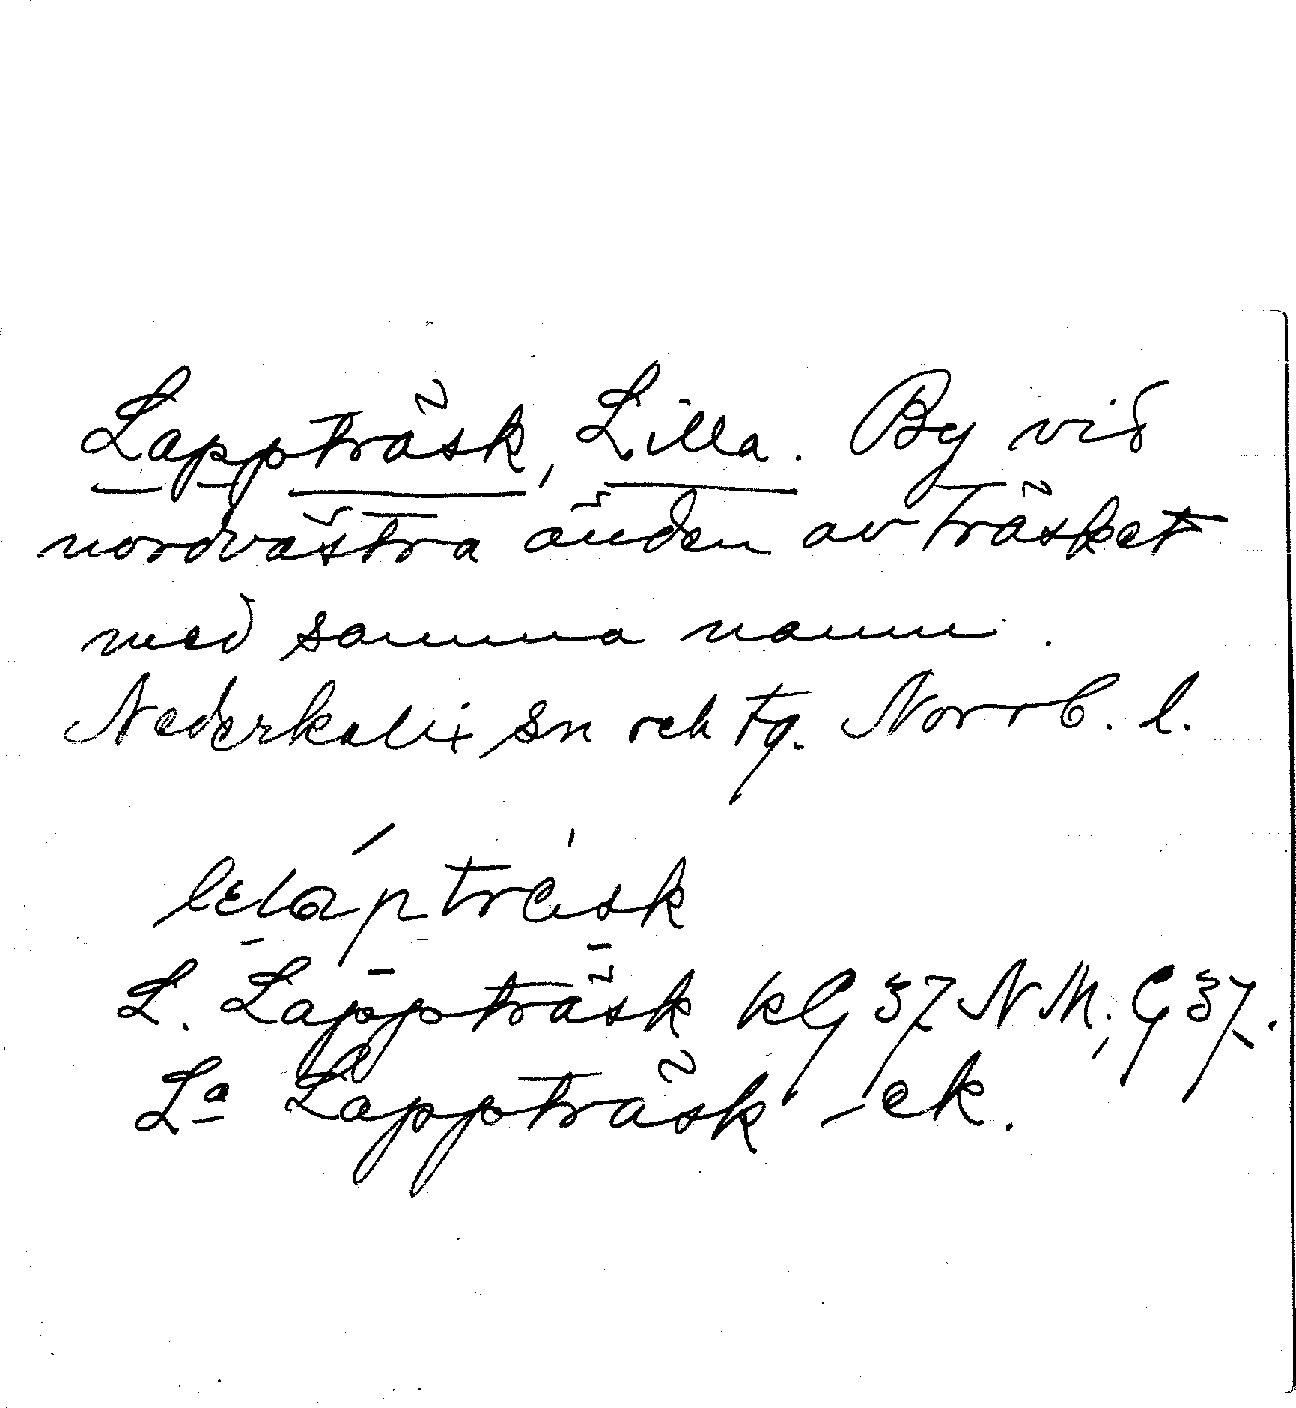 Lappträsk, Lilla. By vid
nordvästra änden av träsket
med samma namn.
Nederkalix sn och tg. Norrb. l.
L. Lappträsk kG 37 NM; G 37.
La Lappträsk -ek.